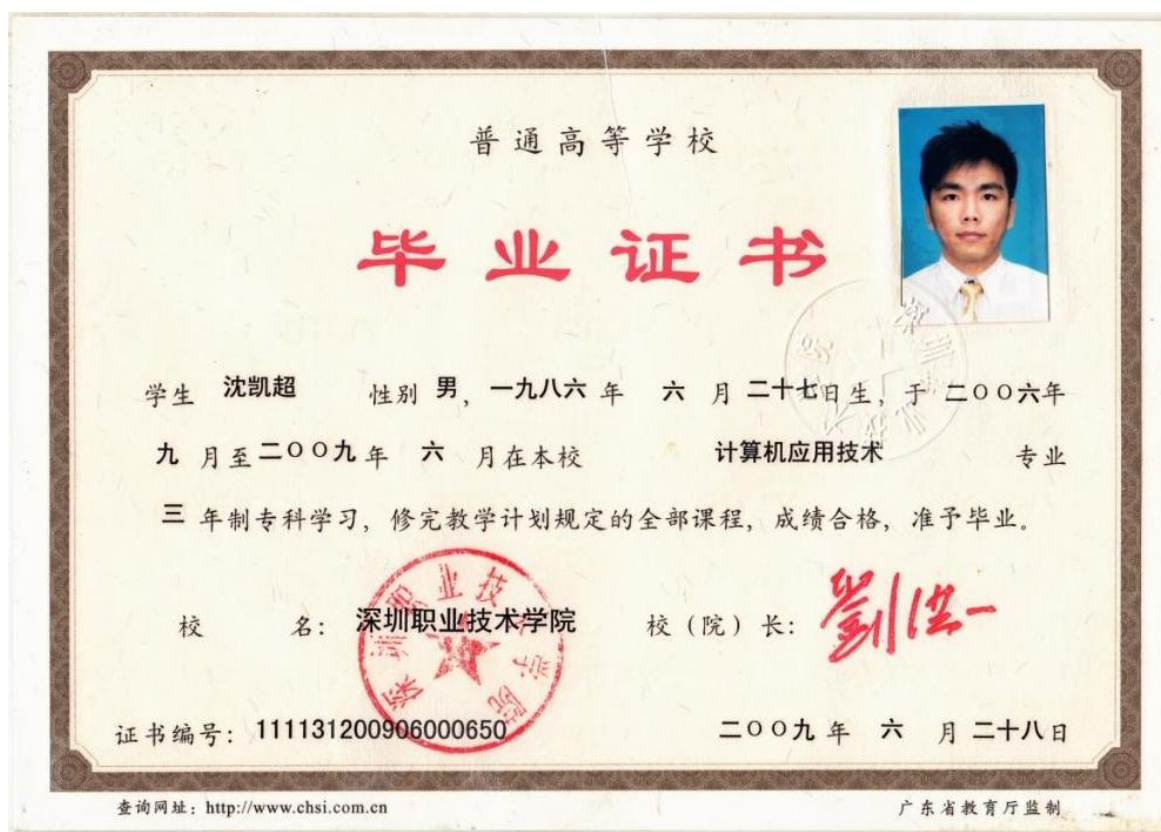 普通高等学校
毕业证书
学生 沈凯超 性别 男，一九八六年 六 月 二十七日生，于 二〇〇六年
九 月至二〇〇九年 六 月在本校 计算机应用技术 专业
三 年制专科学习，修完教学计划规定的全部课程，成绩合格，准予毕业。
校 名：深圳职业技术学院 校（院）长：劉洪一
深圳职业技术学院
证书编号：111131200906000650 二〇〇九年 六 月 二十八日
查询网址：http://www.chsi.com.cn 广东省教育厅监制